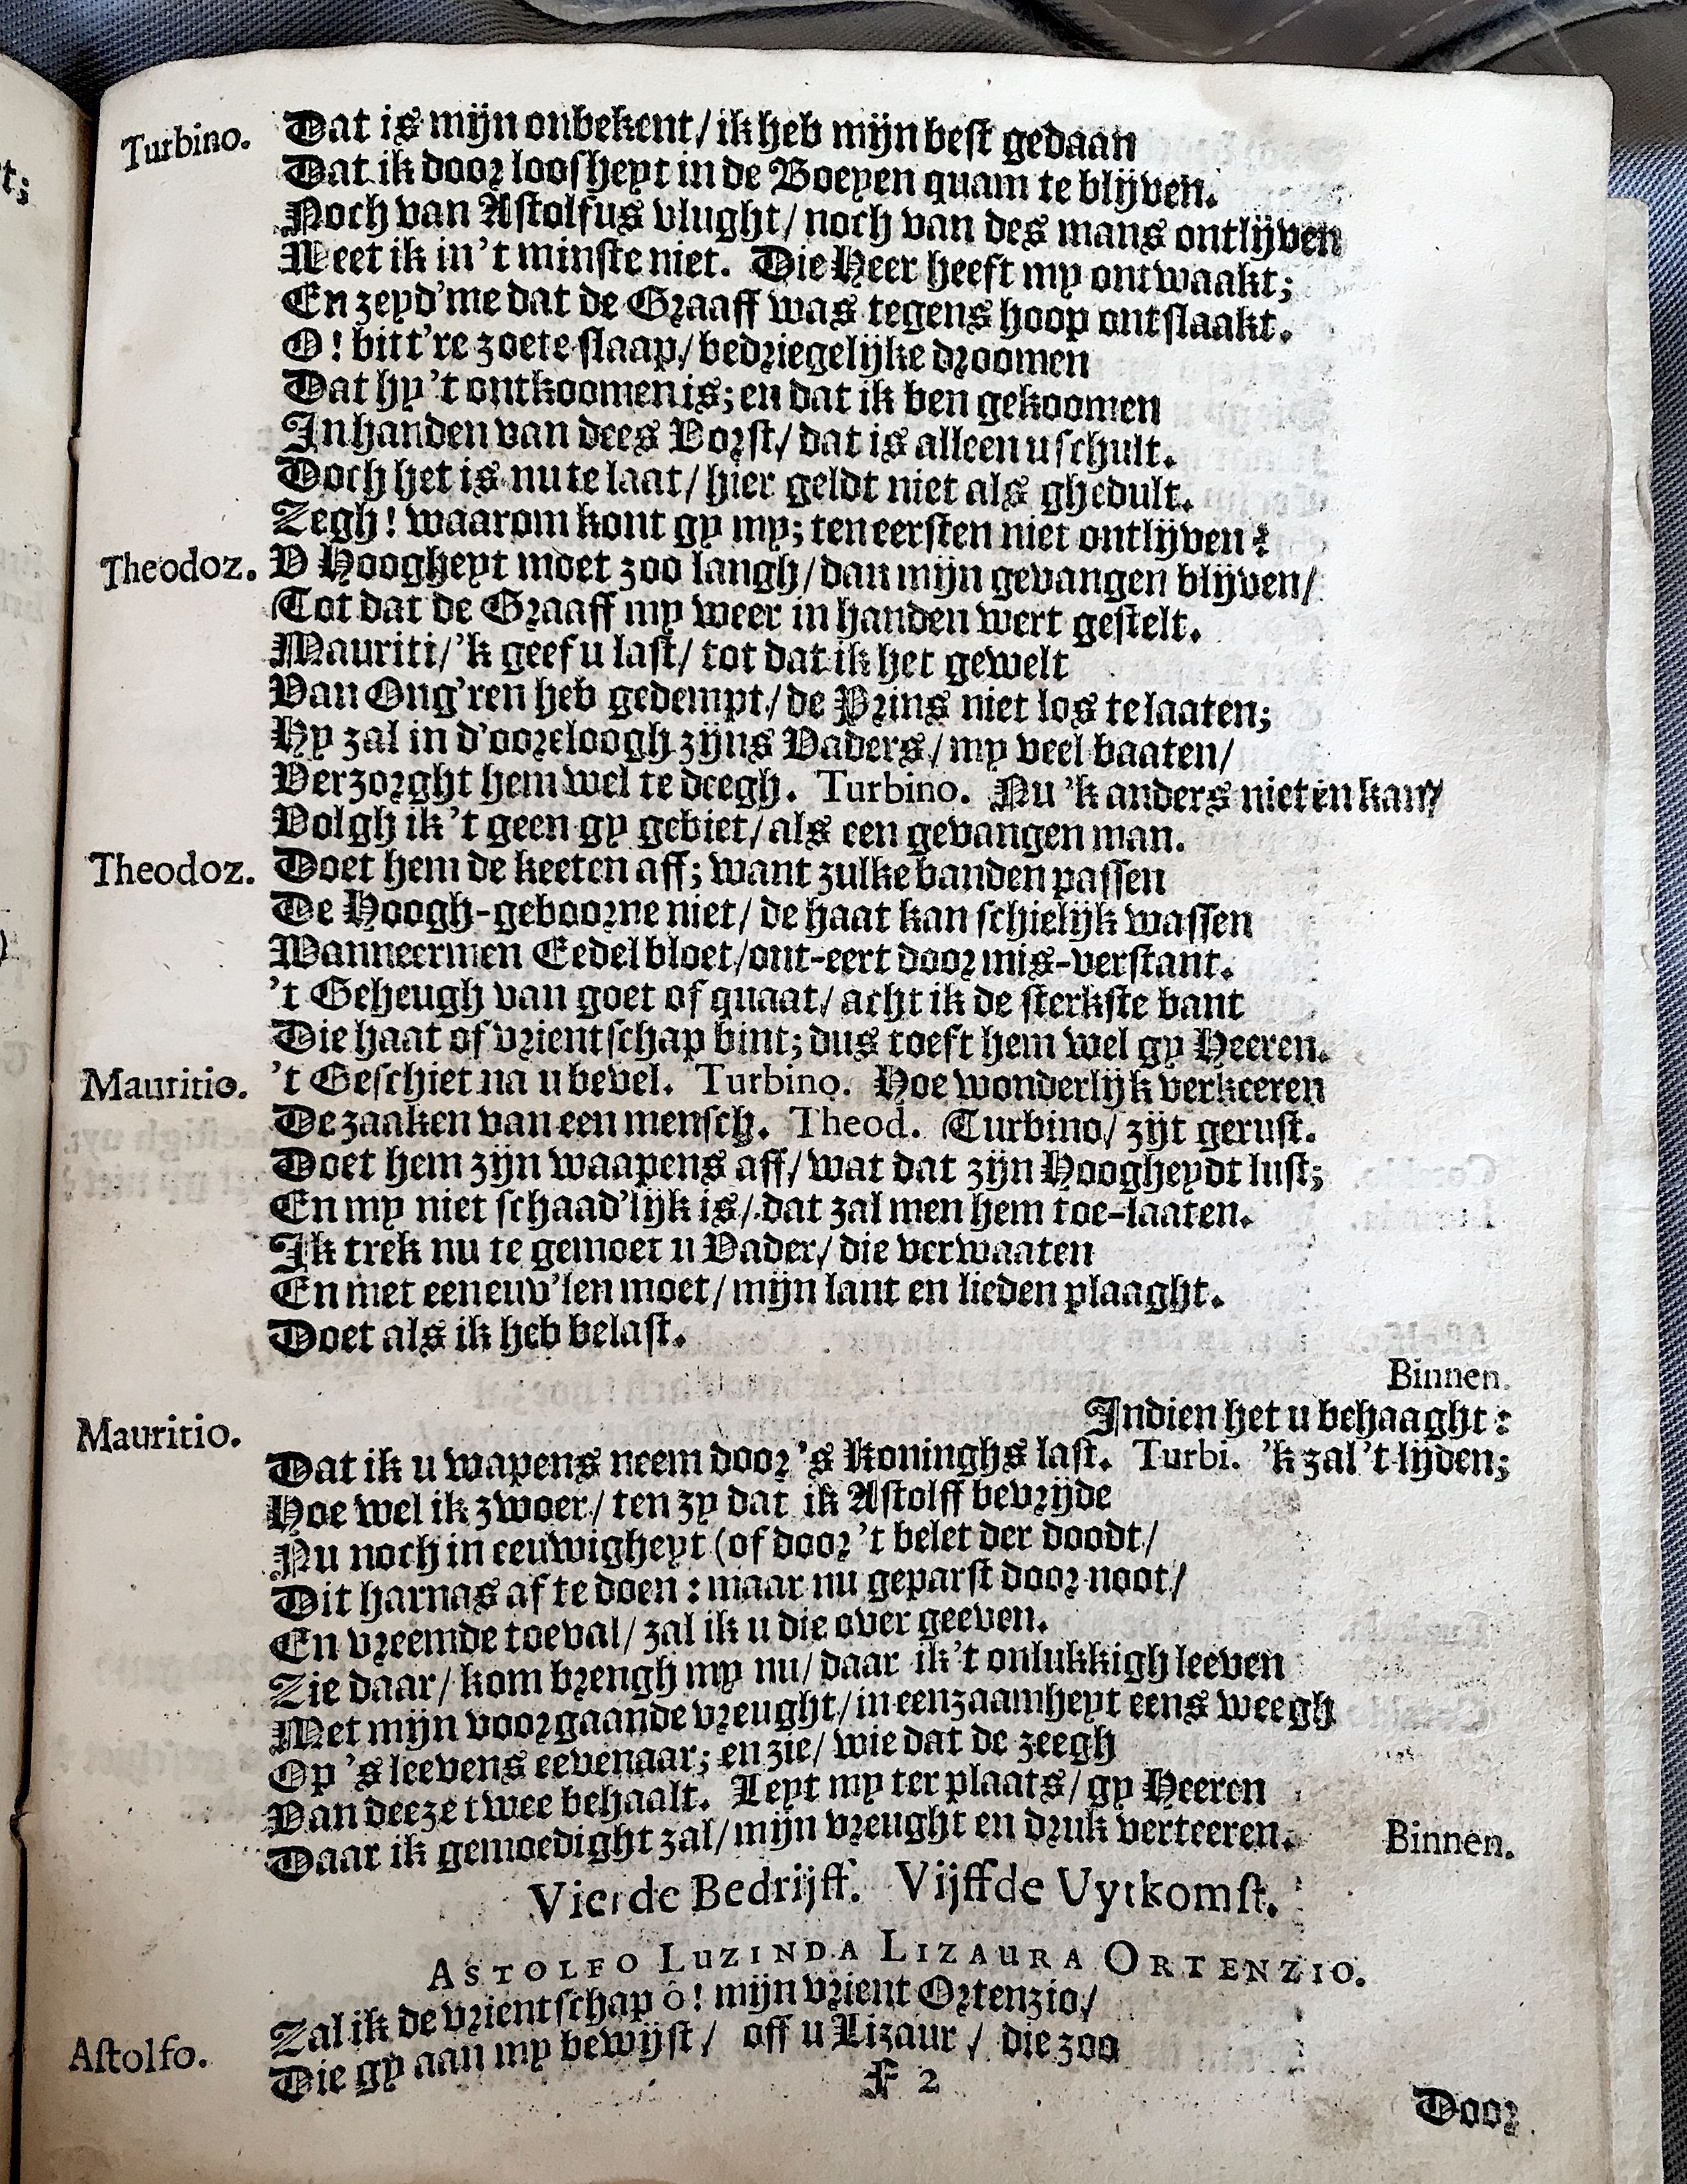 Turbino. Dat is mijn onbekent/ ik heb mijn best gedaan
Dat ik door loosheyt in de Boeyen quam te blijven.
Noch van Astolfus vlught/ noch van des mans ontlijven
Weet ik in 't minste niet. Die Heer heeft my ontwaakt;
En zeyd' me dat de Graaff was tegens hoop ontslaakt.
O! bitt're zoete slaap/ bedriegelijke droomen
Dat hy 't ontkoomen is; en dat ik ben gekoomen
In handen van dees Vorst/ dat is alleen u schult.
Doch het is nu te laat/ hier geldt niet als ghedult.
Zegh! waarom kont gy my; ten eersten niet ontlijven?
Theodoz. V Hoogheyt moet zoo langh/ dan mijn gevangen blijven/
Tot dat de Graaff my weer in handen wert gestelt.
Mauriti/ 'k geef u last/ tot dat ik het gewelt
Van Ong'ren heb gedempt/ de Prins niet los te laaten;
Hy zal in d'ooreloogh zijns Vaders/ my veel baaten/
Verzorght hem wel te deegh. Turbino. Nu 'k anders niet en kan/
Volgh ik 't geen gy gebiet/ als een gevangen man.
Theodoz. Doet hem de keeten aff; want zulke banden passen
De Hoogh-geboorne niet/ de haat kan schielijk wassen
Wanneermen Eedel bloet/ ont-eert door mis-verstant.
't Geheugh van goet of quaat/ acht ik de sterkste bant
Die haat of vrientschap bint; dus toeft hem wel gy Heeren.
Mauritio. 't Geschiet na u bevel. Turbino. Hoe wonderlijk verkeeren
De zaaken van een mensch. Theod. Turbino/ zijt gerust.
Doet hem zijn waapens aff/ wat dat zijn Hoogheydt lust;
En my niet schaad'lijk is/ dat zal men hem toe-laaten.
Ik trek nu te gemoet u Vader/ die verwaaten
En met een euv'len moet/ mijn lant en lieden plaaght.
Doet als ik heb belast.
Binnen.
Mauritio. Indien het u behaaght:
Dat ik u wapens neem door 's Koninghs last. Turbi. 'k zal 't lijden;
Hoe wel ik zwoer/ ten zy dat ik Astolff bevrijde
Nu noch in eeuwigheyt (of door 't belet der doodt/
Dit harnas af te doen: maar nu geparst door noot/
En vreemde toeval/ zal ik u die over geeven.
Zie daar/ kom brengh my nu/ daar ik 't onlukkigh leeven
Met mijn voorgaande vreught/ in eenzaamheyt eens weegh
Op 's leevens eevenaar; en zie/ wie dat de zeegh
Van deeze twee behaalt. Leyt my ter plaats/ gy Heeren
Daar ik gemoedight zal/ mijn vreught en druk verteeren. Binnen.
Vierde Bedrijff. Vijffde Uytkomst.
ASTOLFO LUZINDA LIZAURA ORTENZIO.
Astolfo. Zal ik de vrientschap ô! mijn vrient Ortenzio/
Die gy aan my bewijst/ off u Lizaur/ die zoo
F 2
Door